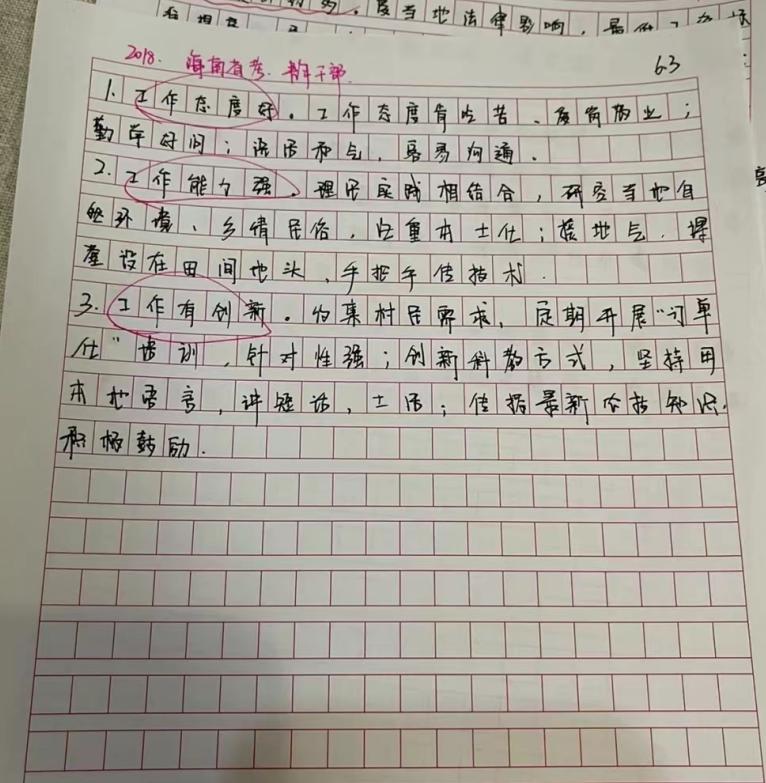 2018. 海南省考. 青年干部.
63
1. 工作态度好。工作态度肯吃苦、爱岗敬业;
勤学好问;语居和气,容易沟通.
2. 工作能力强。理论实践相结合,研究当地自
然环境、乡情民俗,注重本土化;接地气.课
堂设在田间地头,手把手传技术.
3. 工作有创新。收集村民需求,定期开展“订单
化”培训,针对性强;创新科教方式,坚持用
本地语言,讲短话,土话;传播最新农技知识.
积极鼓励.